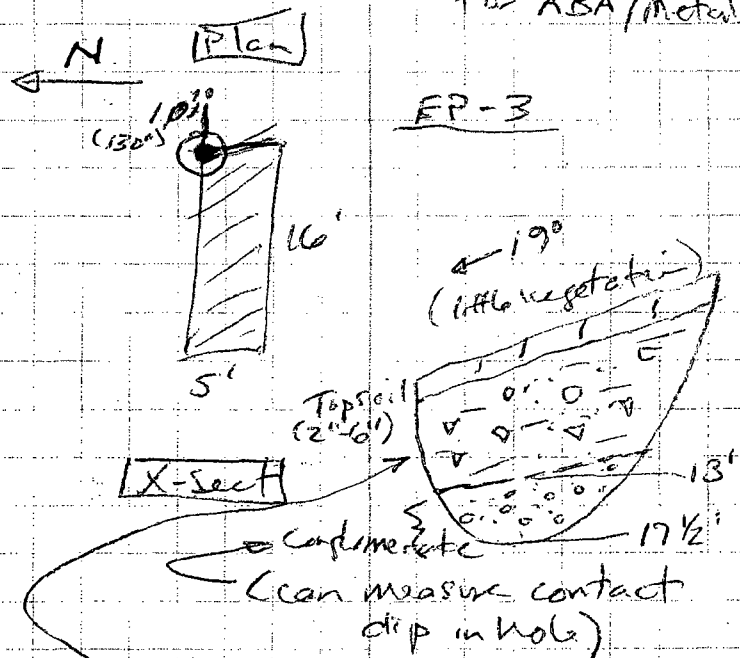 ABA/Metal
Plan
N
(130°)
EP-3
16'
19°
(little vegetation)
5'
Topsoil
(2"-6")
X-Sect
13'
17 1/2'
Conglomerate
(can measure contact
dip in hole)